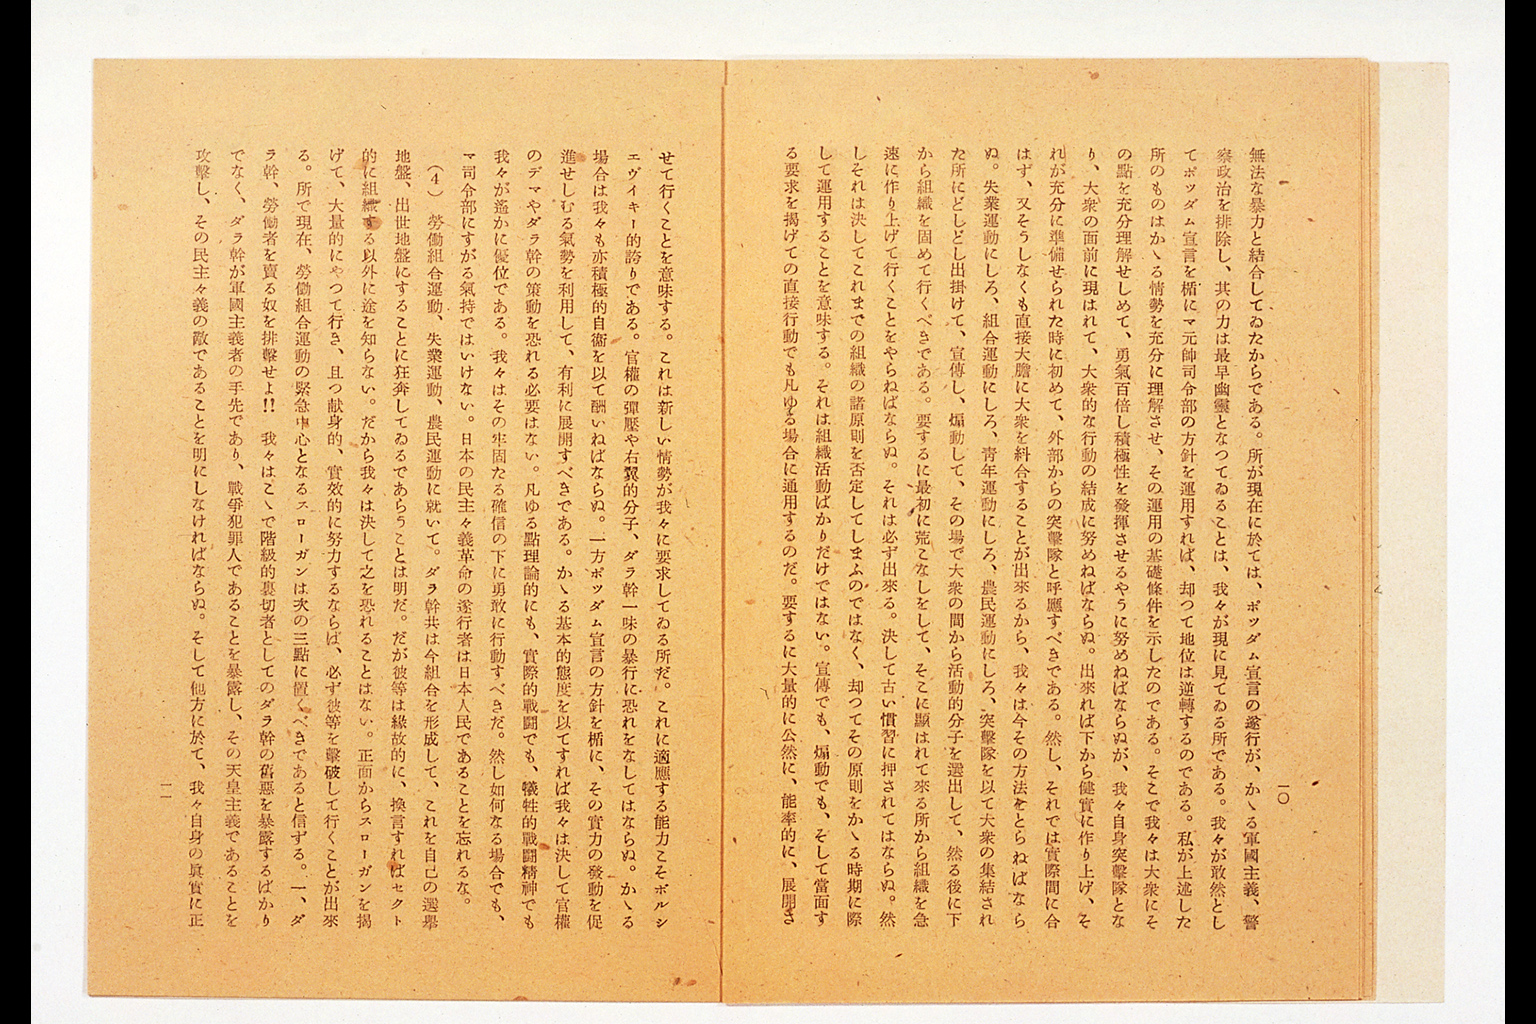 無法な暴力と結合してゐたからである。所が現在に於ては、ポツダム宣言の遂行が、かゝる軍國主義、警
察政治を排除し、其の力は最早幽靈となつてゐることは、我々が現に見てゐる所である。我々が敢然とし
てポツダム宣言を楯にマ元帥司令部の方針を運用すれば、却つて地位は逆轉するのである。私が上述した
所のものはかゝる情勢を充分に理解させ、その運用の基礎條件を示したのである。そこで我々は大衆にそ
の點を充分理解せしめて、勇氣百倍し積極性を發揮させるやうに努めねばならぬが、我々自身突擊隊とな
り、大衆の面前に現はれて、大衆的な行動の結成に努めねばならぬ。出來れば下から健實に作り上げ、そ
れが充分に準備せられた時に初めて、外部からの突擊隊と呼應すべきである。然し、それでは實際間に合
はず、又そうしなくも直接大膽に大衆を糾合することが出來るから、我々は今その方法をとらねばなら
ぬ。失業運動にしろ、組合運動にしろ、靑年運動にしろ、農民運動にしろ、突擊隊を以て大衆の集結され
た所にどしどし出掛けて、宣傳し、煽動して、その場で大衆の間から活動的分子を選出して、然る後に下
から組織を固めて行くべきである。要するに最初に荒こなしをして、そこに顯はれて來る所から組織を急
速に作り上げて行くことをやらねばならぬ。それは必ず出來る。決して古い慣習に押されてはならぬ。然
しそれは決してこれまでの組織の諸原則を否定してしまふのではなく、却つてその原則をかゝる時期に際
して運用することを意味する。それは組織活動ばかりだけではない。宣傳でも、煽動でも、そして當面す
る要求を揭げての直接行動でも凡ゆる場合に通用するのだ。要するに大量的に公然に、能率的に、展開さ
一〇
せて行くことを意味する。これは新しい情勢が我々に要求してゐる所だ。これに適應する能力こそボルシ
エヴイキー的誇りである。官權の彈壓や右翼的分子、ダラ幹一味の暴行に恐れをなしてはならぬ。かゝる
場合は我々も亦積極的自衞を以て酬いねばならぬ。一方ポツダム宣言の方針を楯に、その實力の發動を促
進せしむる氣勢を利用して、有利に展開すべきである。かゝる基本的態度を以てすれば我々は決して官權
のデマやダラ幹の策動を恐れる必要はない。凡ゆる點理論的にも、實際的戰鬪でも、犧牲的戰鬪精神でも
我々が遙かに優位である。我々はその牢固たる確信の下に勇敢に行動すべきだ。然し如何なる場合でも、
マ司令部にすがる氣持ではいけない。日本の民主々義革命の遂行者は日本人民であることを忘れるな。
(4) 勞働組合運動、失業運動、農民運動に就いて。ダラ幹共は今組合を形成して、これを自己の選擧
地盤、出世地盤にすることに狂奔してゐるであらうことは明だ。だが彼等は緣故的に、換言すればセクト
的に組織する以外に途を知らない。だから我々は決して之を恐れることはない。正面からスローガンを揭
げて、大量的にやつて行き、且つ獻身的、實效的に努力するならば、必ず彼等を擊破して行くことが出來
る。所で現在、勞働組合運動の緊急中心となるスローガンは次の三點に置くべきであると信ずる。一、ダ
ラ幹、勞働者を賣る奴を排擊せよ!! 我々はこゝで階級的裏切者としてのダラ幹の舊惡を暴露するばかり
でなく、ダラ幹が軍國主義者の手先であり、戰爭犯罪人であることを暴露し、その天皇主義であることを
攻擊し、その民主々義の敵であることを明にしなければならぬ。そして他方に於て、我々自身の眞實に正
一一